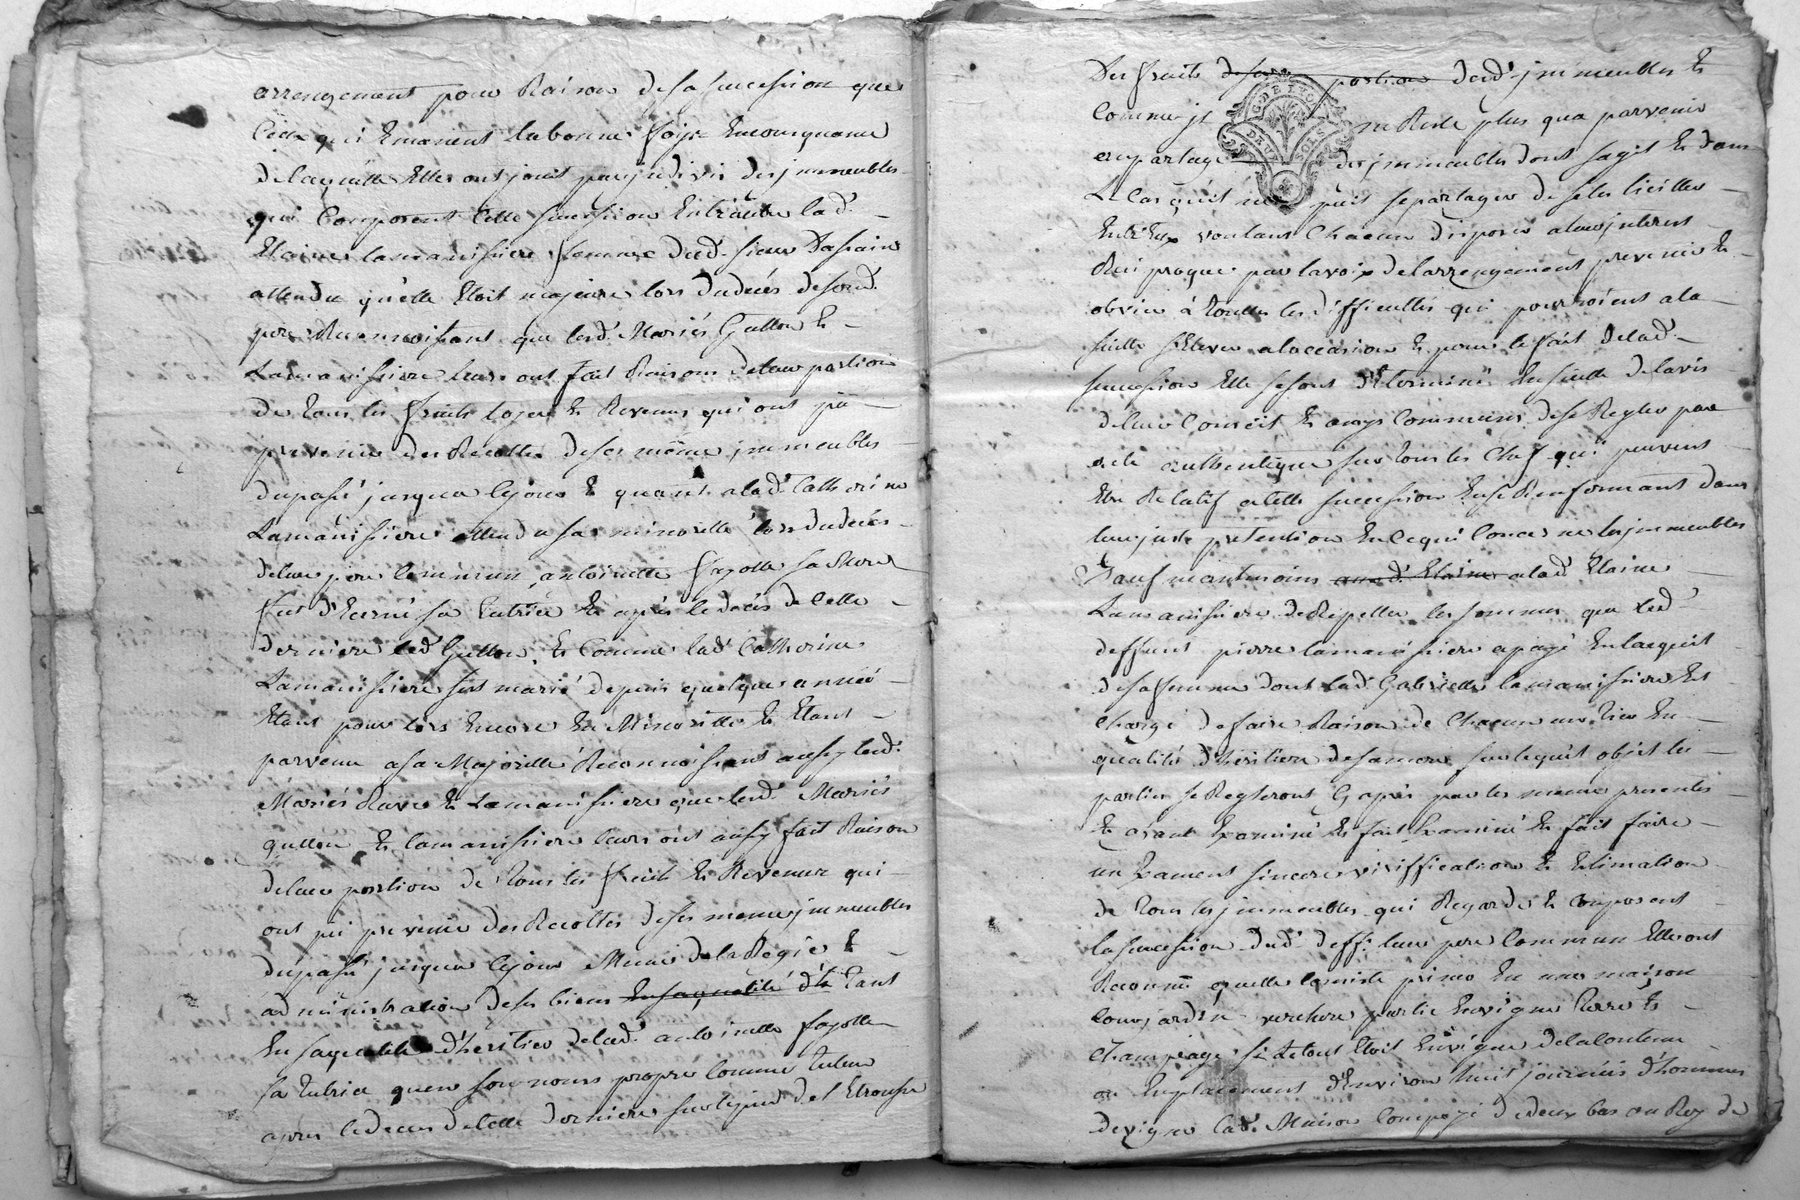 arrengement pour Raison de sa succession que
Celle qui Emanent la bonne foye En consequance
de laquelle Elles ont jouit par jndivis des jmmeubles
qui Composent Cette succession Entr'autre lad.
Elaine lamanissiere femme dud. sieur
attendu qu'elle Etoit majeure lors du deces de sond.
pere Reconnoissant que lesd. Mariés Gullon Et
Lamanissiere leurs ont fait Raisons de leur portion
de tous les fruits loyer Et Revenus qui ont pû
provenir des Recoltes de ses même jmmeubles
du passé jusqua Cejour Et quant a lad. Catherine
Lamanissiere attendu sa minorité lors du deces
de leur pere Commun, antoinette fayolle sa Mere
fut d'Ecerné sa tutrice Et après le deces de Cette
derniere led. Gullon, Et Comme lad. Catherine
Lamanissiere s'est marié depuis quelque année
Etant pour lors Encore En Minorité Et Etant
parvenu a sa Majorité Reconnoissent aussy lesd.
Mariés Rave Et Lamanissiere que lesd. Mariés
gullon Et lamanissiere leurs ont aussy fait Raison
de leur portion de tous les fruits Et Revenux qui
ont pû provenir des Recoltes de ses meme jmmeubles
du passé jusqua Cejour Meme de la Regie Et
administration de ses biens En saqualité d'h tant
En saqualité d'heritier de lad. antoinette fayolle
sa tutrice quen son noms propre Comme tuteur
apres le deces de Cette derniere surlequel de s'Etrouve
Des fruits de sa portion desd. jmmeubles Et
Comme jl ne Reste plus qua parvenir
au partage des jmmeubles dont sagit Et dans
Le Cas quil ne puit se partager de se les
Entr'Eux voulant Chacun disposer a leur jnterest
Reciproque par la voix de l'arrengement prevenir Et
obvier à toutes les difficultés qui pourroient a la
suitte s'Elever a l'occasion Et pour le fait de lad.
succession Elle se sont d'Eterminé En suitte de l'avis
de leur Conseil Et amys Communs de se Regler par
acte authentique sur tous les Chef qui peuvent
Etre Relatif a Cette succession En se Renfermant dans
leur juste pretention En Ce qui Concerne les jmmeubles
Sauf neantmoins aud. Elaine a lad. Elaine
Lamanissiere de Repetter les sommes que led.
deffunt pierre lamanissiere a payé En lacquit
de sa femme dont lad. Gabrielle lamanissiere Est
Chargé de faire Raison de Chacun un tier En
qualité d'heritiere de sa mere surlequel objet les
parties se Regleront Cy après par les meme presentes
Et ayant Examiné Et fait Examiné Et fait faire
un Examens sincere veriffication Et Estimation
de tous les jmmeubles qui Regarde Et Composent
la succession dud. deff. leur pere Commun Elle ont
Reconnû quelle Consiste primo En une maison
Cour jardin verchere partie En vigne terre Et
Champeage si letout Etoit En vigne de la Contenu
ou Emplacement d'Environ huit journées d'hommes
de vigne lad. Maison Composé de deux bas au Rez de
G. DE LYON
DEUX SOLS